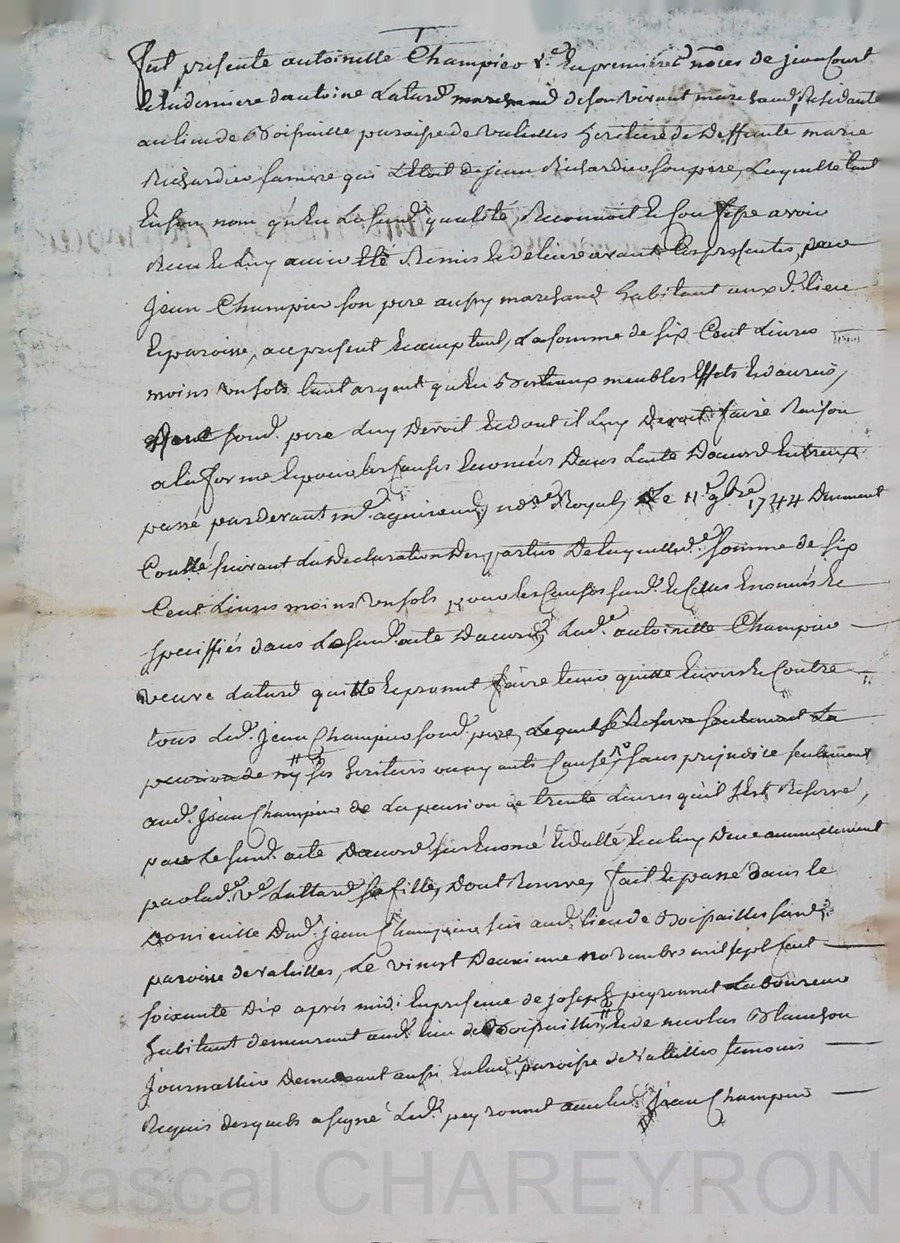 Fut presente antoinette Champier v.e en premieres noces de jean Court
et en derniere d'antoine Latard marchand de son vivant marchand, Residante
au lieu de Boisfaille paroisse de valeilles heritiere de deffunte marie
Richardier sa mere qui L'Etoit de jean Richardier son pere, Laquelle tant
En son nom qu'en La susd. qualité, Reconnoit et Confesse avoir
Reçu et Luy avoir été Remis et delivré avant Les presentes, par
jean Champier son pere aussy marchand habitant aux d. lieu
et paroisse, au present et acceptant, La somme de six Cent Livres
moins un sols tant argent qu'en bestiaux meubles Effets et danrées,
dont sond. pere Luy devoit et dont il Luy devoit faire Raison
a la forme et pour les Causes Enoncées dans L'acte D'acord Entreux
passé pardevant m.e no.re Royal, Le 11.e 9bre 1744 duement
Conttlé suivant La declaration des parties De Laquelle d. somme de six
Cent Livres moins un sols pour les Causes susd. et Celles Enoncées et
speciffiés dans Le susd. acte D'acord, Lad. antoinette Champier
veuve Latard quitte et promet faire tenir quitte Envers et Contre
tous Led. jean Champier sond. pere, Lequel se Reserve seulement La
pension de ny ses heritiers ou ayants Cause, sans prejudice seulement
aud. jean Champier de La pension de trente Livres qu'il s'est Reservé,
par Le susd. acte D'acord sus Enoncé et datté, et a luy due annuelement
par lad. v.e Lattard sa fille, Dont Reserve, fait et passé dans le
Domicille dud. jean Champier sis aud. lieu de Boisfailles susd.
paroisse de valeilles, Le vingt Deuxieme novembre mil sept Cent
soixante dix après midi En presence de joseph peyronnet Laboureur
habitant demeurant aud. lieu de Boisfailles, et de nicolas Blanchon
journallier Demeurant aussi En lad. paroisse de valeilles temoins
Requis desquels a signé Led. peyronnet avec led. jean Champier
Pascal CHAREYRON